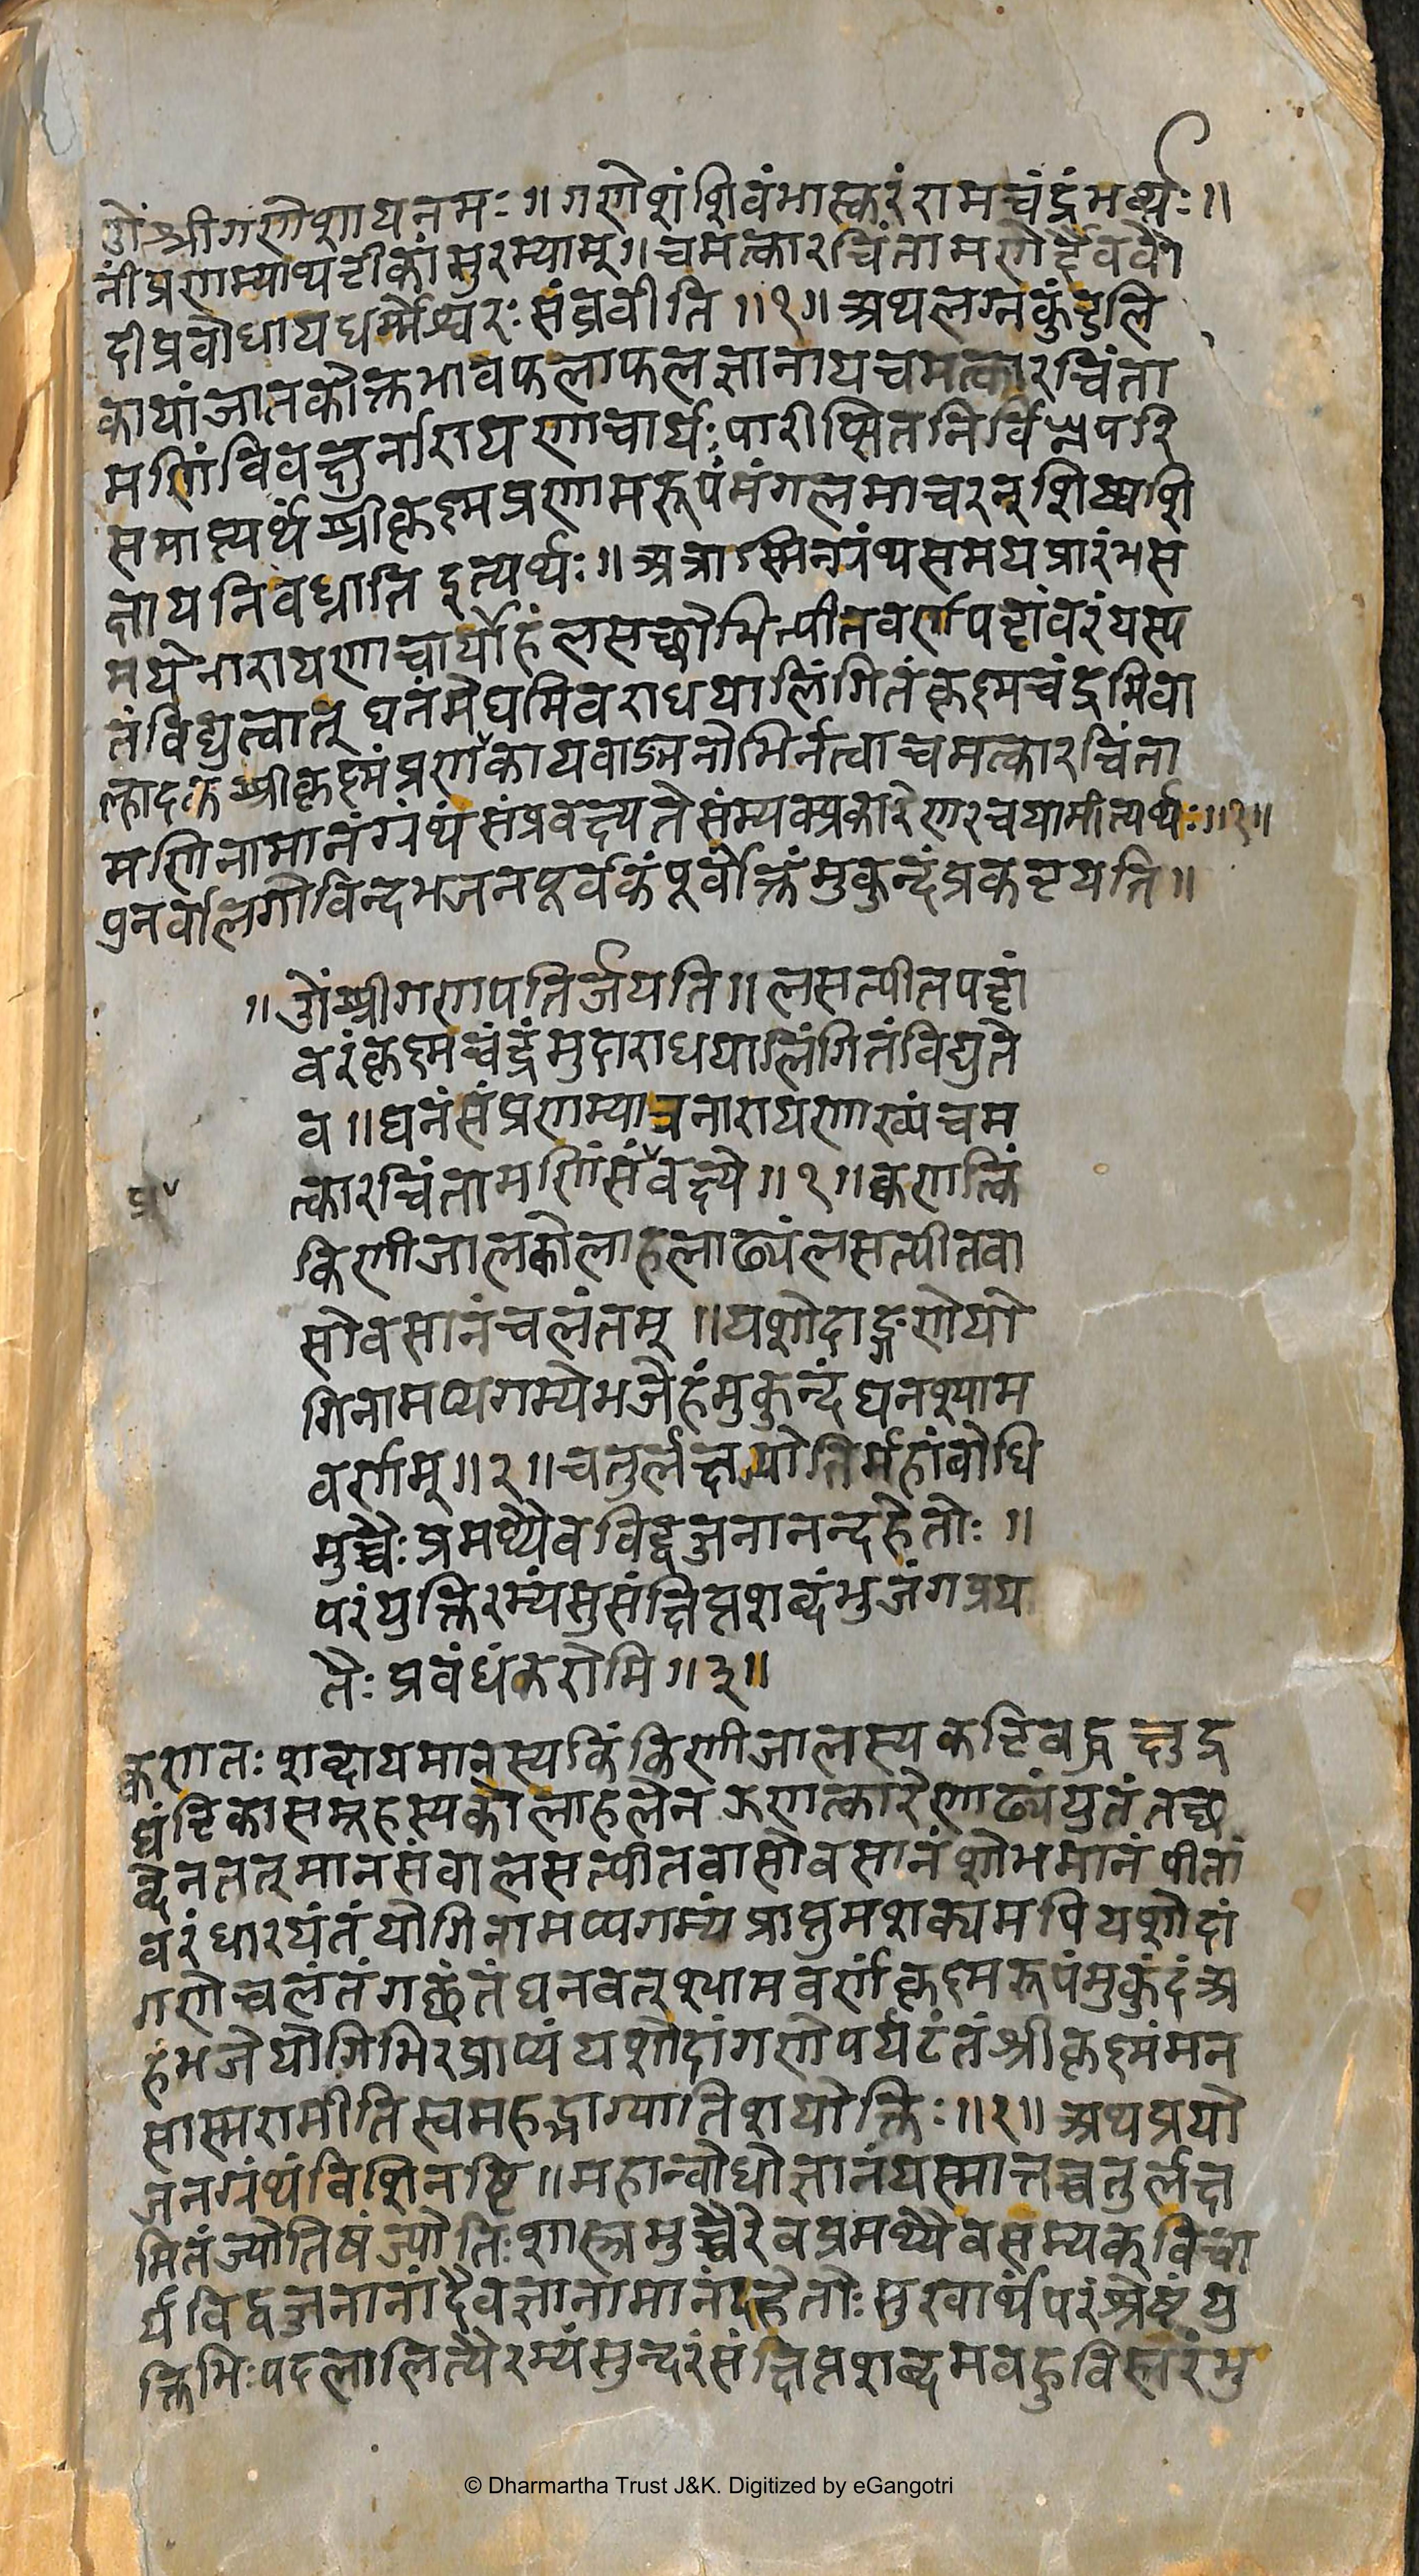 ओंश्रीगणेशायनमः॥गणेशंशिवंभास्करंरामचंद्रंमर्थः॥
नींप्रणम्याथटीकांसुरम्याम्॥चमत्कारचिंतामणेर्दैववे
दीप्रवोधायधर्मेश्वरः संब्रवीति॥१॥अथलग्नकुंडलि
कायांजातकोक्तभावफलाफलज्ञानायचमत्कारचिंता
मणिंविवक्षुर्नारायणाचार्यःपारीप्सितनिर्विघ्नपरि
समाप्त्यर्थंश्रीकृष्णप्रणामरूपंमंगलमाचरन्शिष्यशि
क्षायनिवध्नाति इत्यर्थः॥अत्राऽस्मिन्ग्रंथसमयप्रारंभस
मयेनारायणाचार्योहंलसच्छोभित्पीतवर्णपट्टांवरंयस्य
तंविद्युत्वात् घनंमेघमिवराधयालिंगितंकृष्णचंद्रमिवा
ल्हादकं श्रीकृष्णंप्रणकायवाङ्मनोभिर्नत्वाचमत्कारचिंता
मणिनामानंग्रंथंसंप्रवक्ष्यतेसंम्यक्प्रकारेणरचयामीत्यर्थः॥१॥
पुनर्वालगोविन्दभजनपूर्वकंपूर्वोक्तंमुकुन्दंप्रकटयति॥
॥ओंश्रीगणपतिर्जयति॥लसत्पीतपट्टां
वरंकृष्णचंद्रंमुदाराधयालिंगितंविद्युते
व॥घनंसंप्रणम्यात्रनारायणाख्यंचम
त्कारचिंतामणिंसंवक्ष्ये॥१॥क्वणत्किं
प्र
किणीजालकोलाहलाढ्यंलसत्पीतवा
सोवसानंचलंतम्॥यशोदाङ्गणेयो
गिनामप्यगम्येभजेहंमुकुन्दंघनश्याम
वर्णम्॥२॥चतुर्लक्षज्योतिर्महांवोधि
मुच्चैःप्रमथ्यैवविद्वज्जनानन्दहेतोः॥
परंयुक्तिरम्यंसुसंक्षिप्तशब्दंभुजंगप्रय
तैःप्रवंधंकरोमि॥३॥
क्वणतःशब्दायमानस्यकिंकिणीजालस्यकटिवद्धक्षुद्र
घंटिकासमूहस्यकोलाहलेनझणत्कारेणाढ्यंयुतंतच्छ
ब्देनतत्मानसंवालसत्पीतवासोवसानंशोभमानं पीतां
वरंधारयंतंयोगिनामप्यगम्यंप्राप्तुमशक्यमपियशोदां
गणेचलंतंगछंतंघनवत्श्यामवर्णंकृष्णरूपंमुकुंदंअ
हंभजेयोगिभिरप्राप्यंयशोदांगणेपर्यटंतंश्रीकृष्णंमन
सास्मरामीतिस्वमहद्भाग्यातिशयोक्तिः॥२॥अथप्रयो
जनग्रंथंविशिनष्टि॥महान्वोधोज्ञानंयस्मात्तच्चतुर्लक्ष
मितंज्योतिषंज्योतिःशास्त्रमुच्चैरेवप्रमथ्यैवसम्यक्विचा
र्यविद्वज्जनानांदैवज्ञानामानंदहेतोःसुखार्थंपरंश्रेष्टंयु
क्तिभिःपदलालित्यैरम्यंसुन्दरंसंक्षिप्तशब्दमवहुविस्तरंभु
© Dharmartha Trust J&K. Digitized by eGangotri